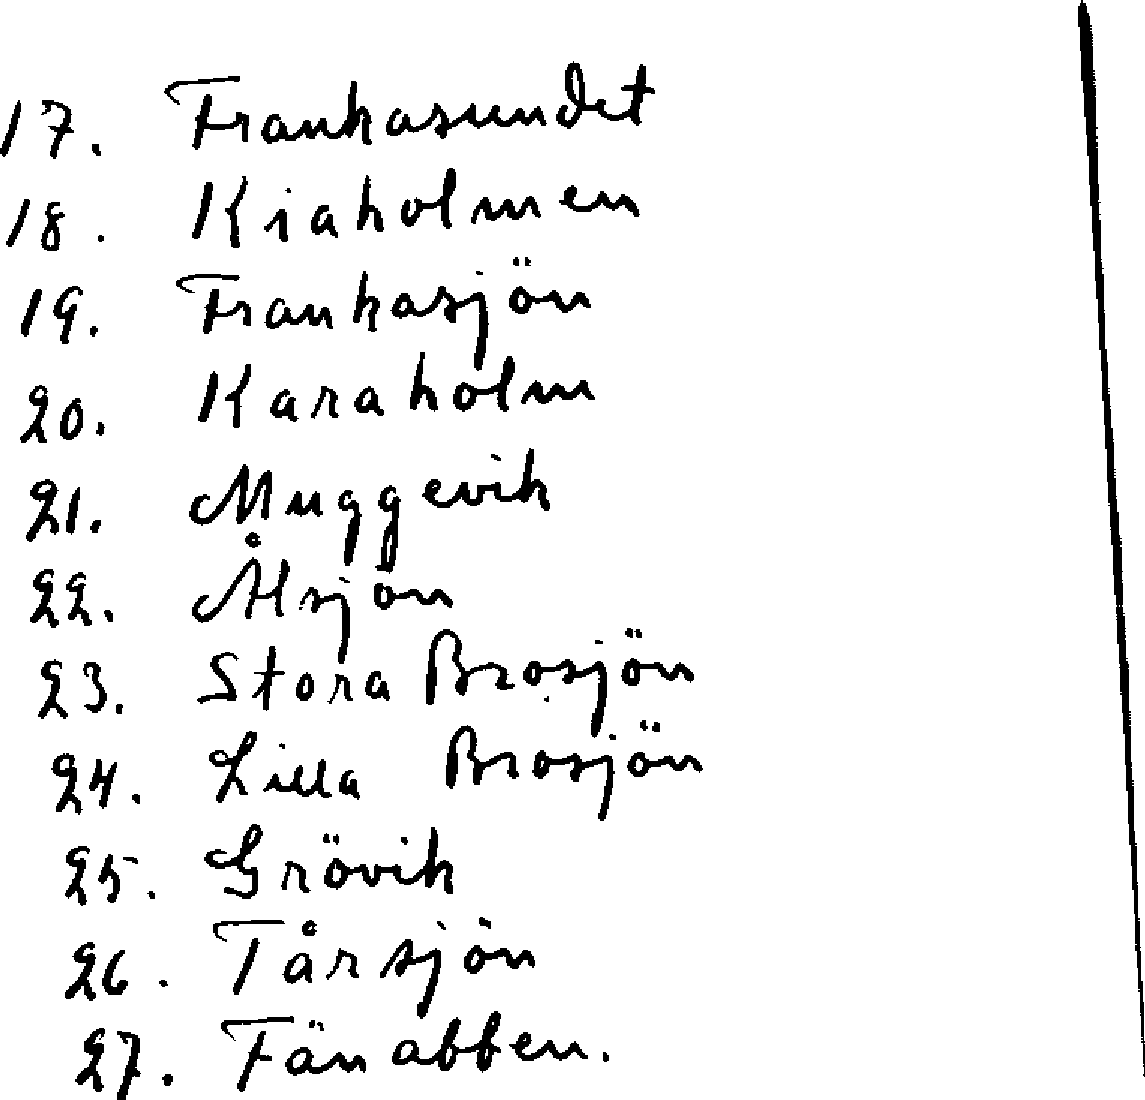 17. Frankasundet
18. Kiaholmen
19. Frankasjön
20. Karaholm
21. Muggevik
22. Ålsjön
23. Stora Brosjön
24. Lilla Brosjön
25. Grövik
26. Tårsjön
27. Fänabben.